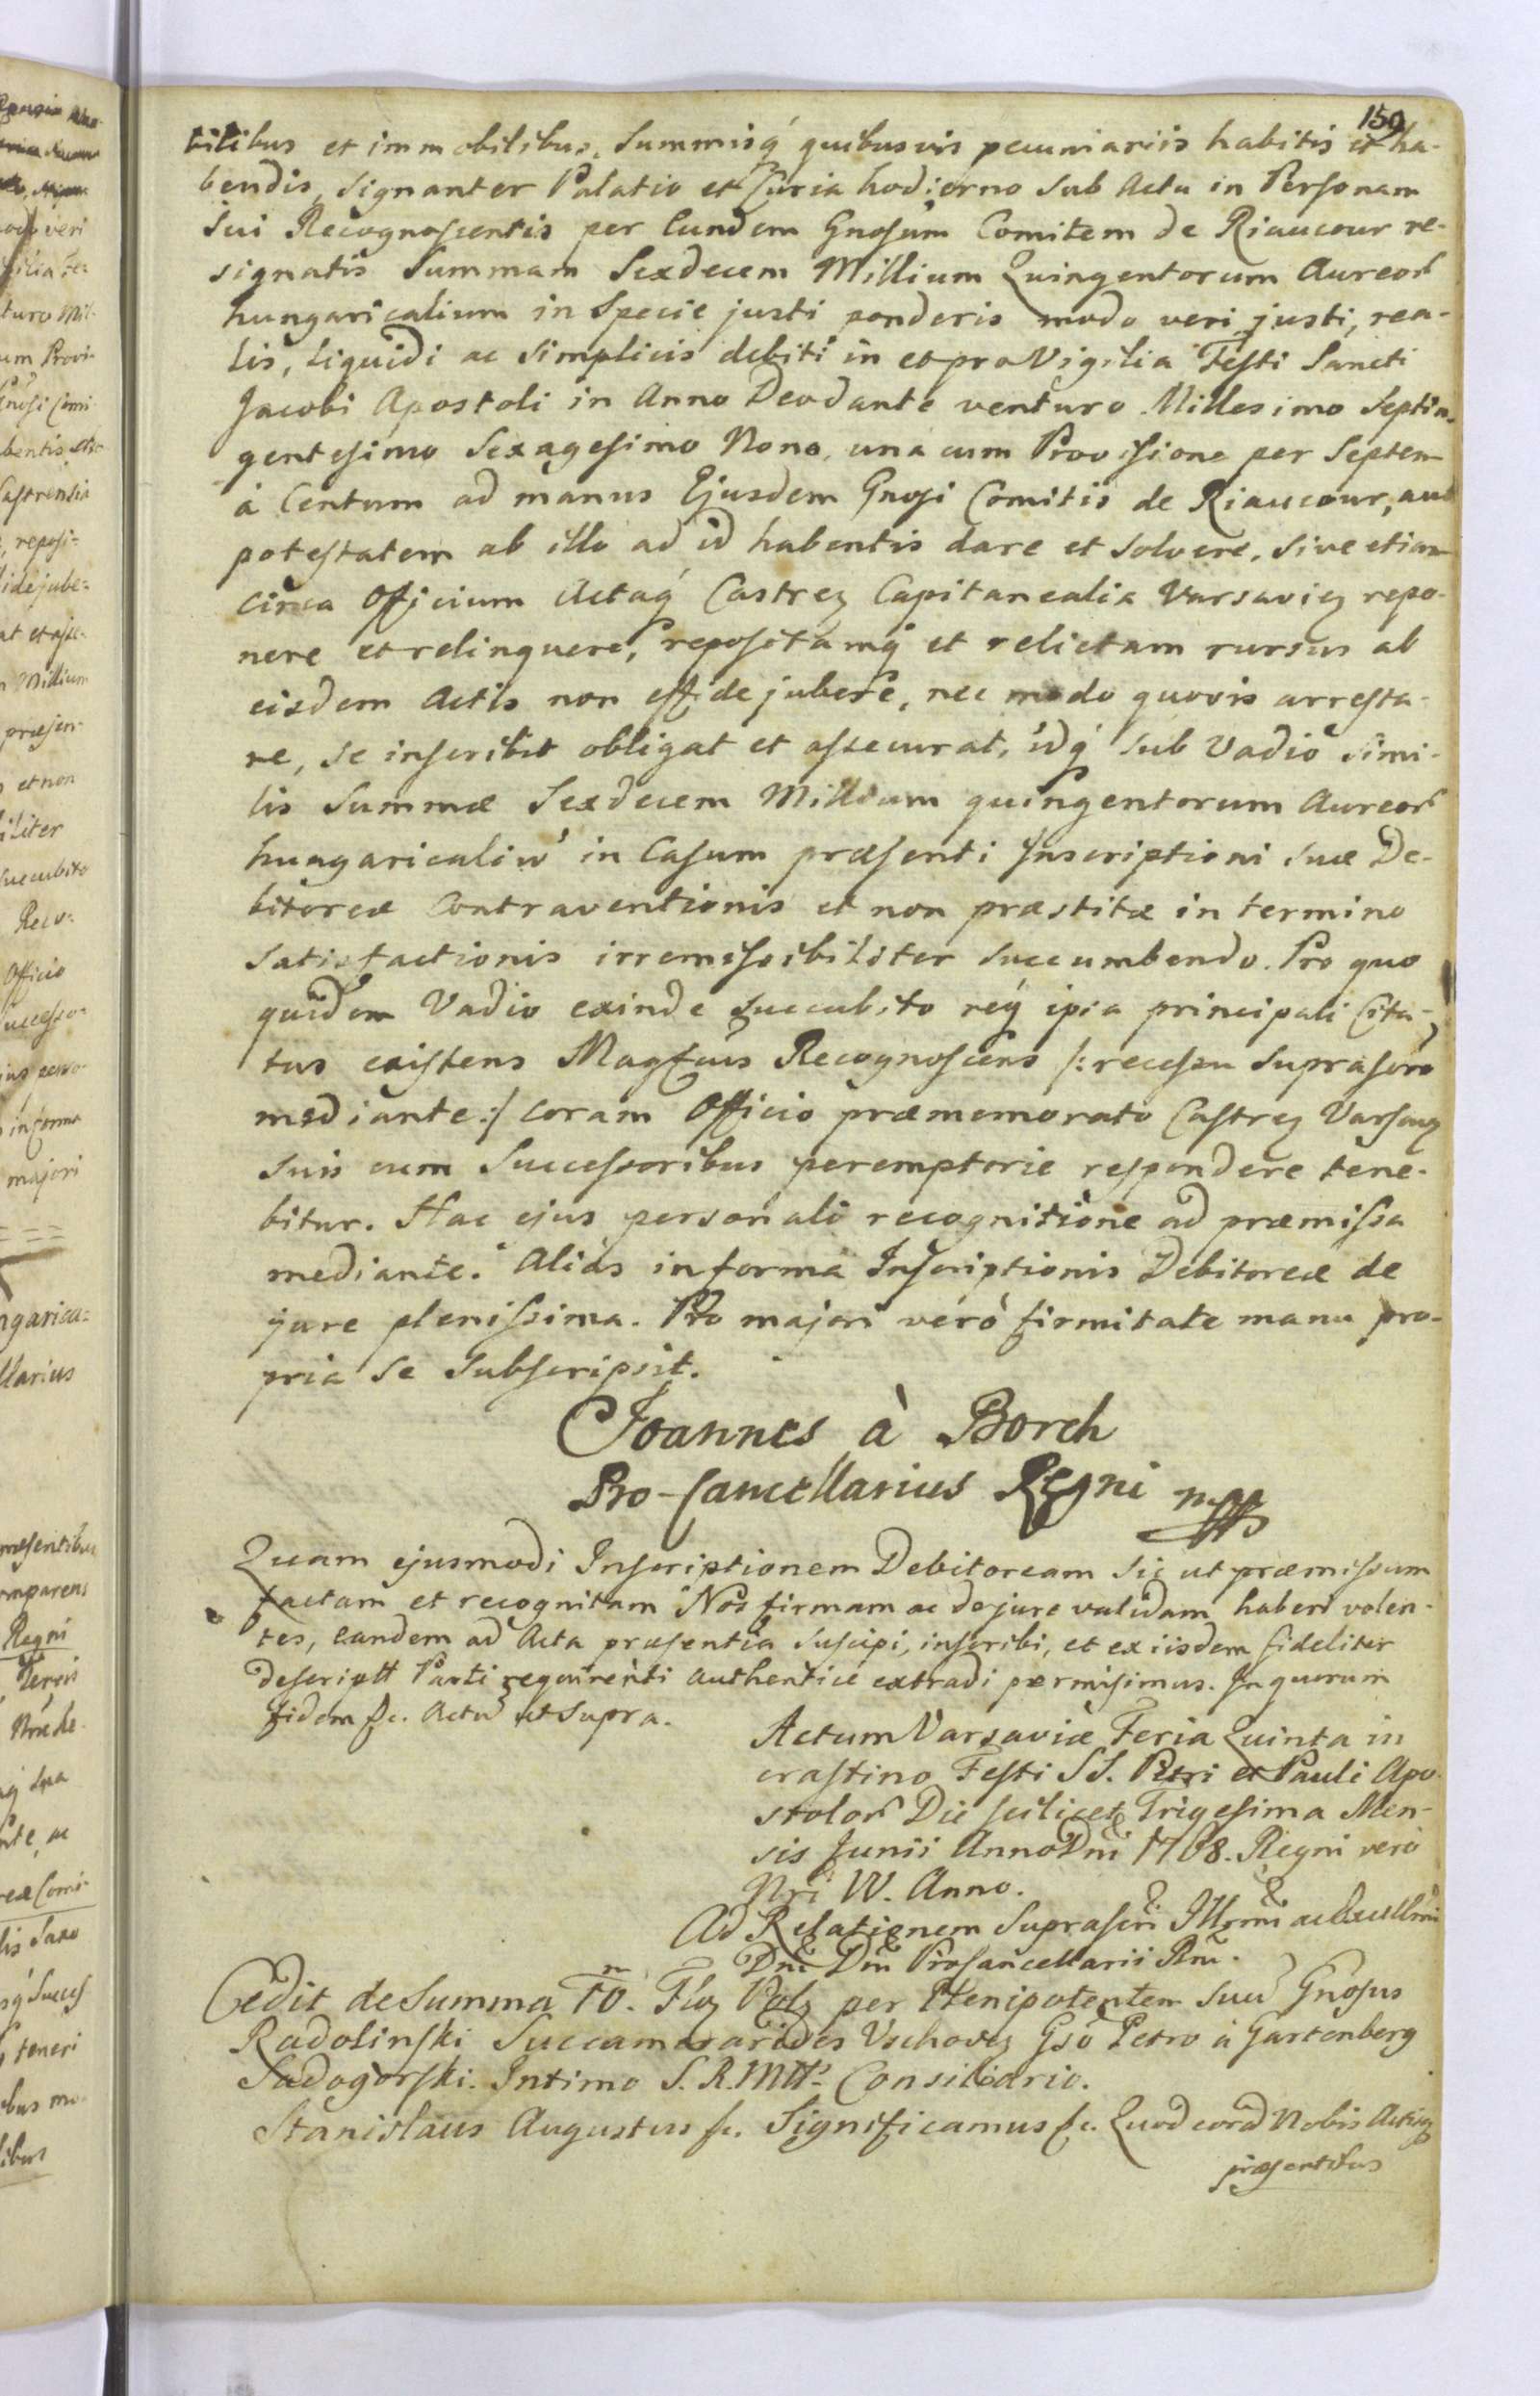 159
bilibus et immobilibus, Summisq́ quibusvis pecuniariis habitis et ha-
bendis, signanter Palatio et Curia hodierno sub Actu in Personam
sui Recognoscentis per Eundem Gnosum Comitem de Riaucour re-
signatis Summam Sexdecem Millium Quingentorum Aureor
hungaricalium in Specie justi ponderis modo veri justi, rea-
lis, liquidi ac simplicis debiti in et pro Vigilia Festi Sancti
Jacobi Apostoli in Anno Deodante venturo Millesimo Septin-
gentesimo Sexagesimo Nono, una cum Provisione per Septem
à Centum ad manus Ejusdem Gnosi Comitis de Riaucour, aut
potestatem ab illo ad id habentis dare et solvere, sive etiam
circa Officium Actaq́ Castreȝ Capitanealia Varsavieȝ repo-
nere et relinquere, repositamq́ et relictam rursus ab
eisdem Actis non effidejubere, nec modo quovis arresta-
re, se inscribit obligat et assecurat, idq́ sub Vadio simi-
lis Summæ Sexdecem Millium quingentorum Aureor
hungaricaliu in Casum præsenti Inscriptioni suæ De-
bitoreæ Contraventionis et non præstitæ in termino
satisfactionis irremissibiliter succumbendo. Pro quo
quidem Vadio exinde succubito req́ ipsa principali Cita-
tus existens Magfcus Recognoscens /: recessu suprascro
mediante :/ coram Officio præmemorato Castreȝ Varsavȝ
suis cum Successoribus peremptorie respondere tene-
bitur. Hac ejus personali recognitione ad præmissa
mediante. Aliàs in forma Inscriptionis Debitoreæ de
jure plenissima. Pro majori verò firmitate manu pro-
pria se subscripsit.
Joannes à Borch
Pro-Cancellarius Regni mpp
Quam ejusmodi Inscriptionem Debitoream sic ut præmissum
factam et recognitam Nos firmam ac de jure validam haberi volen-
tes, eandem ad Acta præsentia suscipi, inscribi, et ex iisdem fideliter
descriptt Parti requirenti authentice extradi permisimus. In quorum
fidem &c. Actu ut supra.
Actum Varsaviæ Feria Quinta in
crastino Festi SS. Petri et Pauli Apo-
stolor Die scilicet Trigesima Men-
sis Junii Anno Dni 1768. Regni verò
Nri IV. Anno.
Ad Relationem Suprascri Illrmi ac Excellmi
Dni Dni Procancellarii Rni.
Cedit de Summa 10. m Floȝ Polȝ per Plenipotentem suu Gnosus
Radolinski Succamerarides Vschoveȝ Gso Petro à Gartenberg
Sadogorski. Intimo S. R. Mtts Consiliario.
Stanislaus Augustus &c. Significamus &c. Quod cora Nobis Actisq́
præsentibus